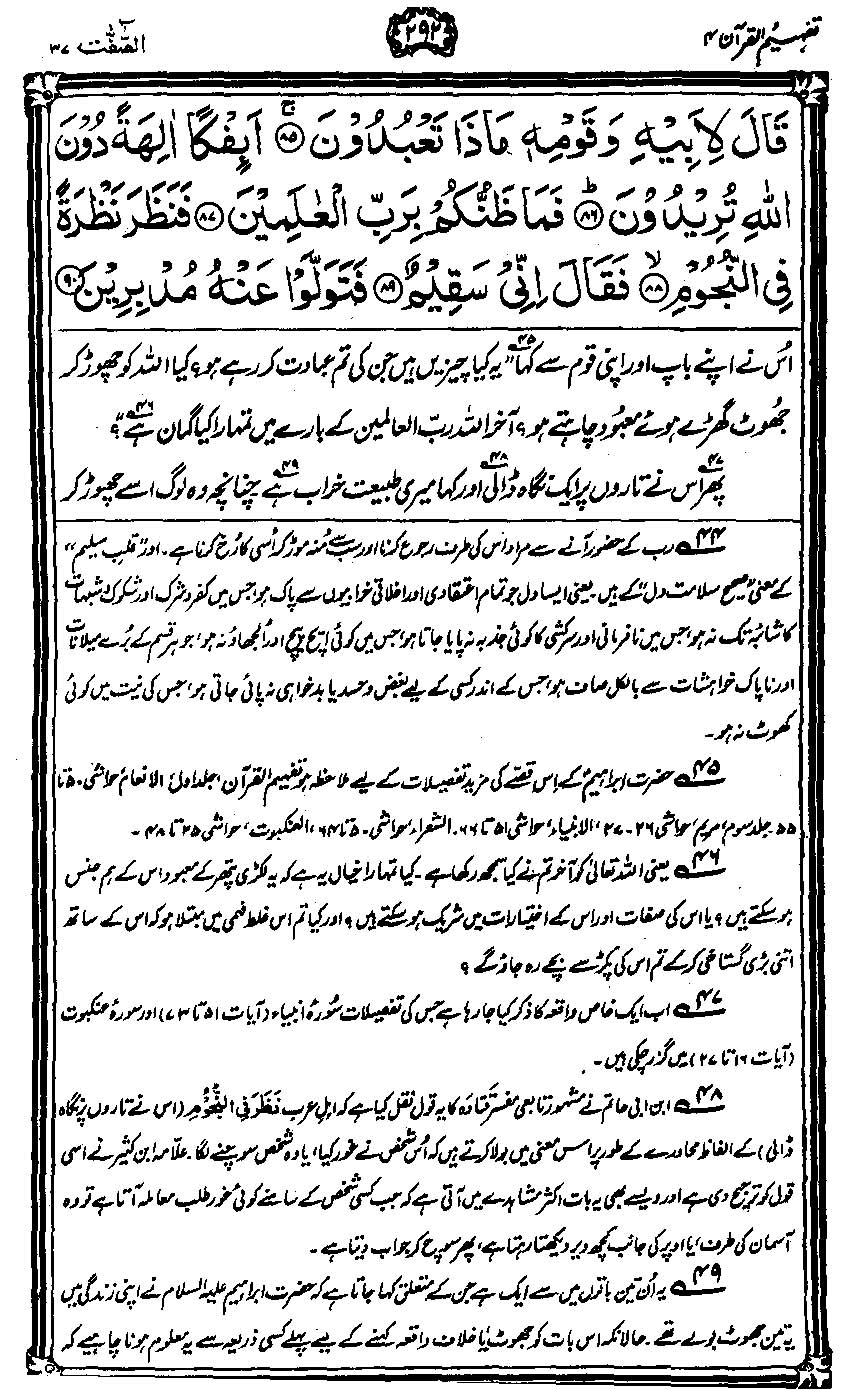 تفہیم القرآن ۴
۲۹۲
الصّٰفّٰت ۳۷
قَالَ لِاَبِیْهِ وَ قَوْمِهٖ مَاذَا تَعْبُدُوْنَ ﴿۸۵﴾ اَىِٕفْكًا اٰلِهَةً دُوْنَ
اللّٰهِ تُرِیْدُوْنَ ﴿۸۶﴾ فَمَا ظَنُّكُمْ بِرَبِّ الْعٰلَمِیْنَ ﴿۸۷﴾ فَنَظَرَ نَظْرَةً
فِی النُّجُوْمِ ﴿۸۸﴾ فَقَالَ اِنِّیْ سَقِیْمٌ ﴿۸۹﴾ فَتَوَلَّوْا عَنْهُ مُدْبِرِیْنَ ﴿۹۰﴾
اُس نے اپنے باپ اور اپنی قوم سے کہا۴۵ ”یہ کیا چیزیں ہیں جن کی تم عبادت کر رہے ہو؟ کیا اللہ کو چھوڑ کر
جھوٹ گھڑے ہوئے معبود چاہتے ہو؟ آخر اللہ ربّ العالمین کے بارے میں تمہارا کیا گمان ہے۴۶“؟
پھر۴۷ اس نے تاروں پر ایک نگاہ ڈالی۴۸ اور کہا میری طبیعت خراب ہے۴۹ چنانچہ وہ لوگ اسے چھوڑ کر
۴۴ رب کے حضور آنے سے مراد اس کی طرف رجوع کرنا اور سب سے منہ موڑ کر اُسی کا رُخ کرنا ہے۔ اور ”قلب سلیم“
کے معنی ”صحیح سلامت دل“ کے ہیں۔ یعنی ایسا دل جو تمام اعتقادی اور اخلاقی خرابیوں سے پاک ہو، جس میں کفر و شرک اور شکوک و شبہات
کا شائبہ تک نہ ہو، جس میں نافرمانی اور سرکشی کا کوئی جذبہ نہ پایا جاتا ہو، جس میں کوئی ایچ پیچ اور اُلجھاؤ نہ ہو، جو ہر قسم کے بُرے میلانات
اور ناپاک خواہشات سے بالکل صاف ہو، جس کے اندر کسی کے لیے بغض و حسد یا بدخواہی نہ پائی جاتی ہو، جس کی نیت میں کوئی
کھوٹ نہ ہو۔
۴۵ حضرت ابراہیمؑ کے اِس قصّے کی مزید تفصیلات کے لیے ملاحظہ ہو تفہیم القرآن، جلد اول، الانعام، حواشی ۵۰ تا
۵۵۔ جلد سوم، مریم، حواشی ۲۶-۲۷، الانبیاء، حواشی ۵۱ تا ۶۶۔ الشعراء، حواشی ۵۰ تا ۶۴، العنکبوت، حواشی ۲۵ تا ۴۸۔
۴۶ یعنی اللہ تعالیٰ کو آخر تم نے کیا سمجھ رکھا ہے۔ کیا تمہارا خیال یہ ہے کہ یہ لکڑی پتھر کے معبود اس کے ہم جنس
ہو سکتے ہیں؟ یا اس کی صفات اور اس کے اختیارات میں شریک ہو سکتے ہیں؟ اور کیا تم اس غلط فہمی میں مبتلا ہو کہ اس کے ساتھ
اتنی بڑی گستاخی کر کے تم اس کی پکڑ سے بچے رہ جاؤ گے؟
۴۷ اب ایک خاص واقعہ کا ذکر کیا جا رہا ہے جس کی تفصیلات سُورۂ انبیاء (آیات ۵۱ تا ۷۳) اور سورۂ عنکبوت
(آیات ۱۶ تا ۲۷) میں گزر چکی ہیں۔
۴۸ ابن ابی حاتم نے مشہور تابعی مفسر قتادہ کا یہ قول نقل کیا ہے کہ اہلِ عرب نَظَرَ فِی النُّجُوْمِ (اس نے تاروں پر نگاہ
ڈالی) کے الفاظ محاورے کے طور پر اس معنی میں بولا کرتے ہیں کہ اُس شخص نے غور کیا، یا وہ شخص سوچنے لگا۔ علّامہ ابن کثیر نے اسی
قول کو ترجیح دی ہے اور ویسے بھی یہ بات اکثر مشاہدے میں آتی ہے کہ جب کسی شخص کے سامنے کوئی غور طلب معاملہ آتا ہے تو وہ
آسمان کی طرف، یا اوپر کی جانب کچھ دیر دیکھتا رہتا ہے، پھر سوچ کر جواب دیتا ہے۔
۴۹ یہ اُن تین باتوں میں سے ایک ہے جن کے متعلق کہا جاتا ہے کہ حضرت ابراہیم علیہ السلام نے اپنی زندگی میں
یہ تین جھوٹ بولے تھے۔ حالانکہ اس بات کو جھوٹ یا خلاف واقعہ کہنے کے لیے پہلے کسی ذریعہ سے یہ معلوم ہونا چاہیے کہ